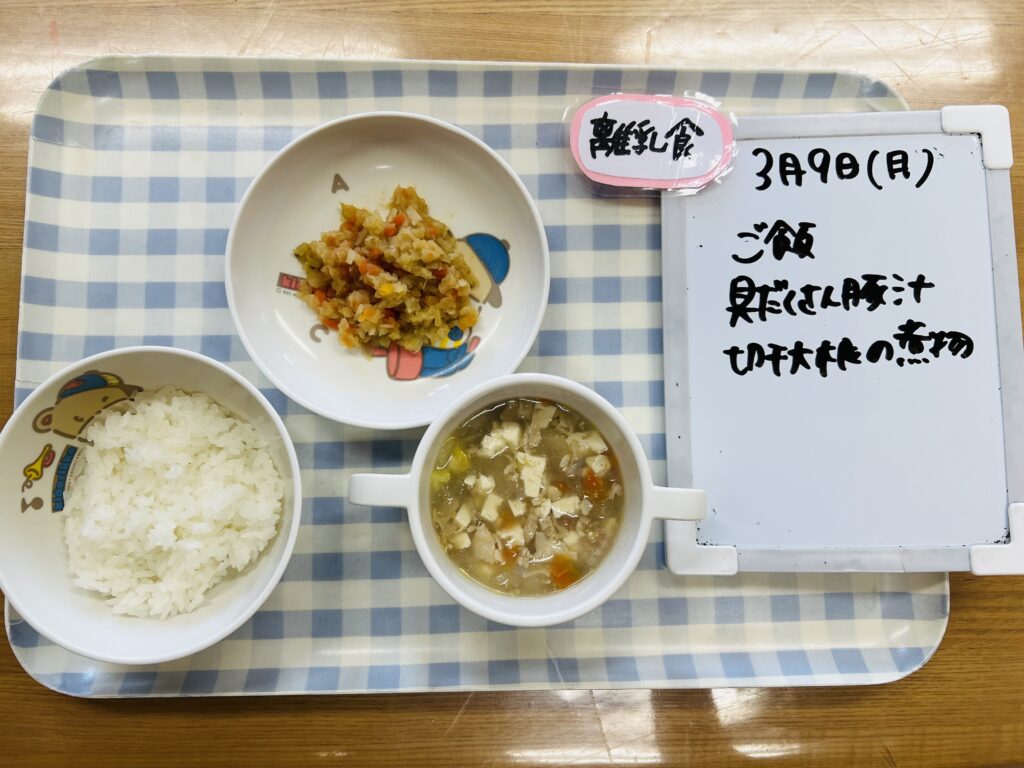 離乳食
3月9日(月)
ご飯
具だくさん豚汁
切干大根の煮物
A
C